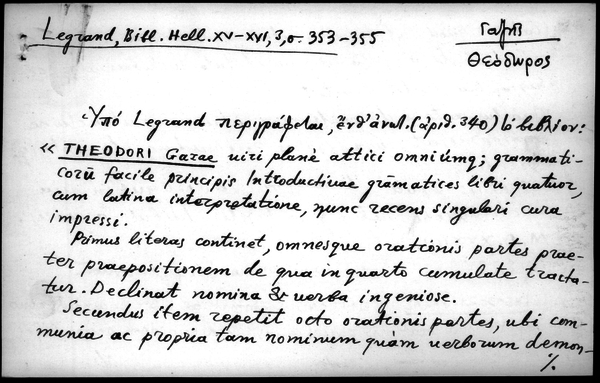 Legrand, Bibl. Hell. XV-XVI, 3, σ. 353-355
Γαζῆς
Θεόδωρος
Ὑπό Legrand περιγράφεται, ἔνθ' ἀνωτ. (ἀριθ. 340) τό βιβλίον:
« THEODORI Gazae uiri planè attici omniúmq; grammati-
corũ facile principis Introductiuae grãmatices libri quatuor,
cum latina interpretatione, nunc recens singulari cura
impressi.
Primus literas continet, omnesque orationis partes prae-
ter praepositionem de qua in quarto cumulate tracta-
tur. Declinat nomina & uerba ingeniose.
Secundus item repetit octo orationis partes, ubi com-
munia ac propria tam nominum quàm uerborum demon-
%